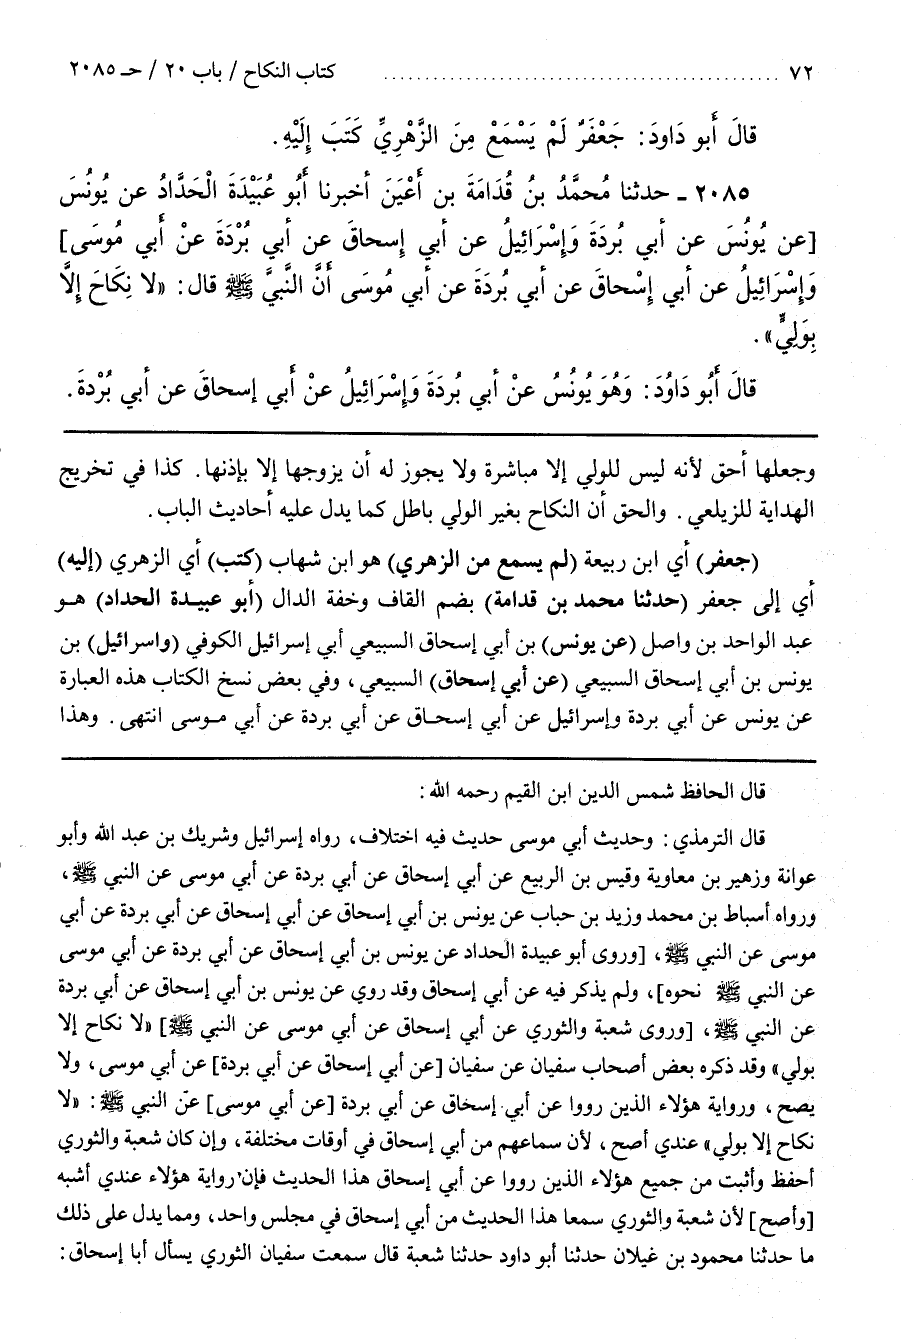 ٧٢ ........................................ كتاب النكاح / باب ٢٠ / حـ ٢٠٨٥
قالَ أَبو دَاودَ: جَعْفَرٌ لَمْ يَسْمَعْ مِنَ الزُّهْرِيِّ كَتَبَ إِلَيْهِ.
٢٠٨٥ ـ حدثنا مُحمَّدُ بنُ قُدَامَةَ بن أَعْيَنَ أخبرنا أَبُو عُبَيْدَةَ الْحَدَّادُ عن يُونُسَ
[عن يُونُسَ عن أبي بُردَةَ وَإِسْرَائِيلُ عن أبي إِسحاقَ عن أبي بُرْدَةَ عنْ أَبي مُوسَى]
وَإِسْرَائِيلُ عن أبي إِسْحاقَ عن أبي بُردَةَ عن أبي مُوسَى أنَّ النَّبيَّ ﷺ قال: «لا نِكَاحَ إِلَّا
بِوَلِيٍّ».
قالَ أَبُو دَاوُدَ: وَهُوَ يُونُسُ عنْ أبي بُردَةَ وَإِسْرَائِيلُ عنْ أَبي إسحاقَ عن أبي بُرْدةَ.
وجعلها أحق لأنه ليس للولي إلا مباشرة ولا يجوز له أن يزوجها إلا بإذنها. كذا في تخريج
الهداية للزيلعي. والحق أن النكاح بغير الولي باطل كما يدل عليه أحاديث الباب.
(جعفر) أي ابن ربيعة (لم يسمع من الزهري) هو ابن شهاب (كتب) أي الزهري (إليه)
أي إلى جعفر (حدثنا محمد بن قدامة) بضم القاف وخفة الدال (أبو عبيدة الحداد) هو
عبد الواحد بن واصل (عن يونس) بن أبي إسحاق السبيعي أبي إسرائيل الكوفي (واسرائيل) بن
يونس بن أبي إسحاق السبيعي (عن أبي إسحاق) السبيعي، وفي بعض نسخ الكتاب هذه العبارة
عن يونس عن أبي بردة وإسرائيل عن أبي إسحاق عن أبي بردة عن أبي موسى انتهى. وهذا
قال الحافظ شمس الدين ابن القيم رحمه الله:
قال الترمذي: وحديث أبي موسى حديث فيه اختلاف، رواه إسرائيل وشريك بن عبد الله وأبو
عوانة وزهير بن معاوية وقيس بن الربيع عن أبي إسحاق عن أبي بردة عن أبي موسى عن النبي ﷺ،
ورواه أسباط بن محمد وزيد بن حباب عن يونس بن أبي إسحاق عن أبي إسحاق عن أبي بردة عن أبي
موسى عن النبي ﷺ، [وروى أبو عبيدة الحداد عن يونس بن أبي إسحاق عن أبي بردة عن أبي موسى
عن النبي ﷺ نحوه]، ولم يذكر فيه عن أبي إسحاق وقد روي عن يونس بن أبي إسحاق عن أبي بردة
عن النبي ﷺ، [وروى شعبة والثوري عن أبي إسحاق عن أبي موسى عن النبي ﷺ] «لا نكاح إلا
بولي» وقد ذكره بعض أصحاب سفيان عن سفيان [عن أبي إسحاق عن أبي بردة] عن أبي موسى، ولا
يصح، ورواية هؤلاء الذين رووا عن أبي إسحاق عن أبي بردة [عن أبي موسى] عن النبي ﷺ: «لا
نكاح إلا بولي» عندي أصح، لأن سماعهم من أبي إسحاق في أوقات مختلفة، وإن كان شعبة والثوري
أحفظ وأثبت من جميع هؤلاء الذين رووا عن أبي إسحاق هذا الحديث فإن رواية هؤلاء عندي أشبه
[وأصح] لأن شعبة والثوري سمعا هذا الحديث من أبي إسحاق في مجلس واحد، ومما يدل على ذلك
ما حدثنا محمود بن غيلان حدثنا أبو داود حدثنا شعبة قال سمعت سفيان الثوري يسأل أبا إسحاق: